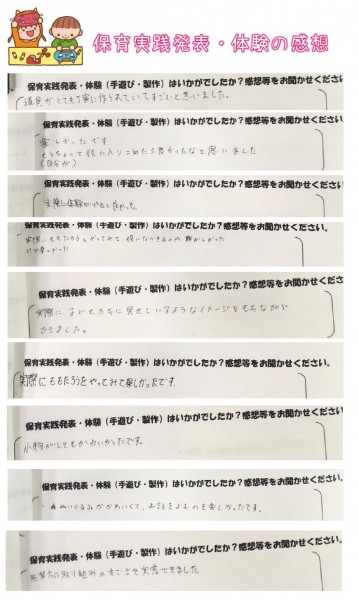 保育実践発表・体験の感想
保育実践発表・体験（手遊び・製作）はいかがでしたか？感想等をお聞かせください。
道具がとても丁寧に作られていてすごいと思いました。
保育実践発表・体験（手遊び・製作）はいかがでしたか？感想等をお聞かせください。
楽しかったです
もうちょっと役に入りこめたら良かったなと思いました
（自分が）
保育実践発表・体験（手遊び・製作）はいかがでしたか？感想等をお聞かせください。
実際に体験ができて良かった。
保育実践発表・体験（手遊び・製作）はいかがでしたか？感想等をお聞かせください。
実際にももたろうを
難しかった
楽しかった
保育実践発表・体験（手遊び・製作）はいかがでしたか？感想等をお聞かせください。
実際に、子どもたちに見せているようなイメージをもちながら
できました。
保育実践発表・体験（手遊び・製作）はいかがでしたか？感想等をお聞かせください。
実際にももたろうをやってみて楽しかったです。
保育実践発表・体験（手遊び・製作）はいかがでしたか？感想等をお聞かせください。
小物がとてもかわいかったです。
保育実践発表・体験（手遊び・製作）はいかがでしたか？感想等をお聞かせください。
ぬいぐるみがかわいくて、お話をよむのも楽しかったです。
保育実践発表・体験（手遊び・製作）はいかがでしたか？感想等をお聞かせください。
取り組みのすごさを実感できました